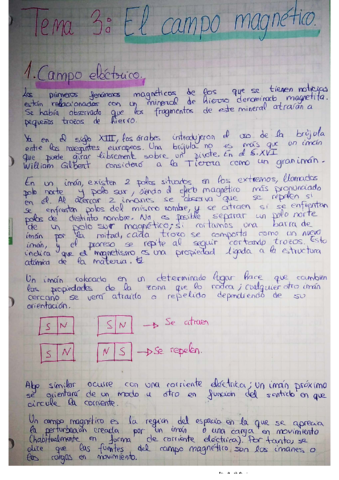 Tema 3: El campo magnético.
1. Campo eléctrico.
Los primeros fenómenos magnéticos de los que se tienen noticias
están relacionados con un mineral de hierro denominado magnetita.
Se había observado que los fragmentos de este mineral atraían a
pequeños trozos de hierro.
Ya en el siglo XIII, los árabes introdujeron el uso de la brújula
entre los navegantes europeos. Una brújula no es más que un imán
que puede girar libremente sobre un pivote. En el S.XVI
William Gilbert consideró a la Tierra como un gran imán.
En un imán existen 2 polos situados en los extremos, llamados
polo norte y polo sur, siendo el efecto magnético más pronunciado
en él. Al acercar 2 imanes se observa que se repelen si
se enfrentan polos del mismo nombre, y se atraen si se enfrentan
polos de distinto nombre. No es posible separar un polo norte
de un polo sur magnético; si cortamos una barra de
imán por la mitad, cada trozo se comporta como un nuevo
imán, y el proceso se repite al seguir cortando trozos. Esto
indica que el magnetismo es una propiedad ligada a la estructura
atómica de la materia.
Un imán colocado en un determinado lugar hace que cambien
las propiedades de la zona que lo rodea; cualquier otro imán
cercano se verá atraído o repelido dependiendo de su
orientación.
S N S N → Se atraen.
S N N S → Se repelen.
Algo similar ocurre con una corriente eléctrica; un imán próximo
se orientará de un modo u otro en función del sentido en que
circule la corriente.
Un campo magnético es la región del espacio en la que se aprecia
la perturbación creada por un imán o una carga en movimiento
(habitualmente en forma de corriente eléctrica). Por tanto, se
dice que las fuentes del campo magnético son los imanes o
las cargas en movimiento.